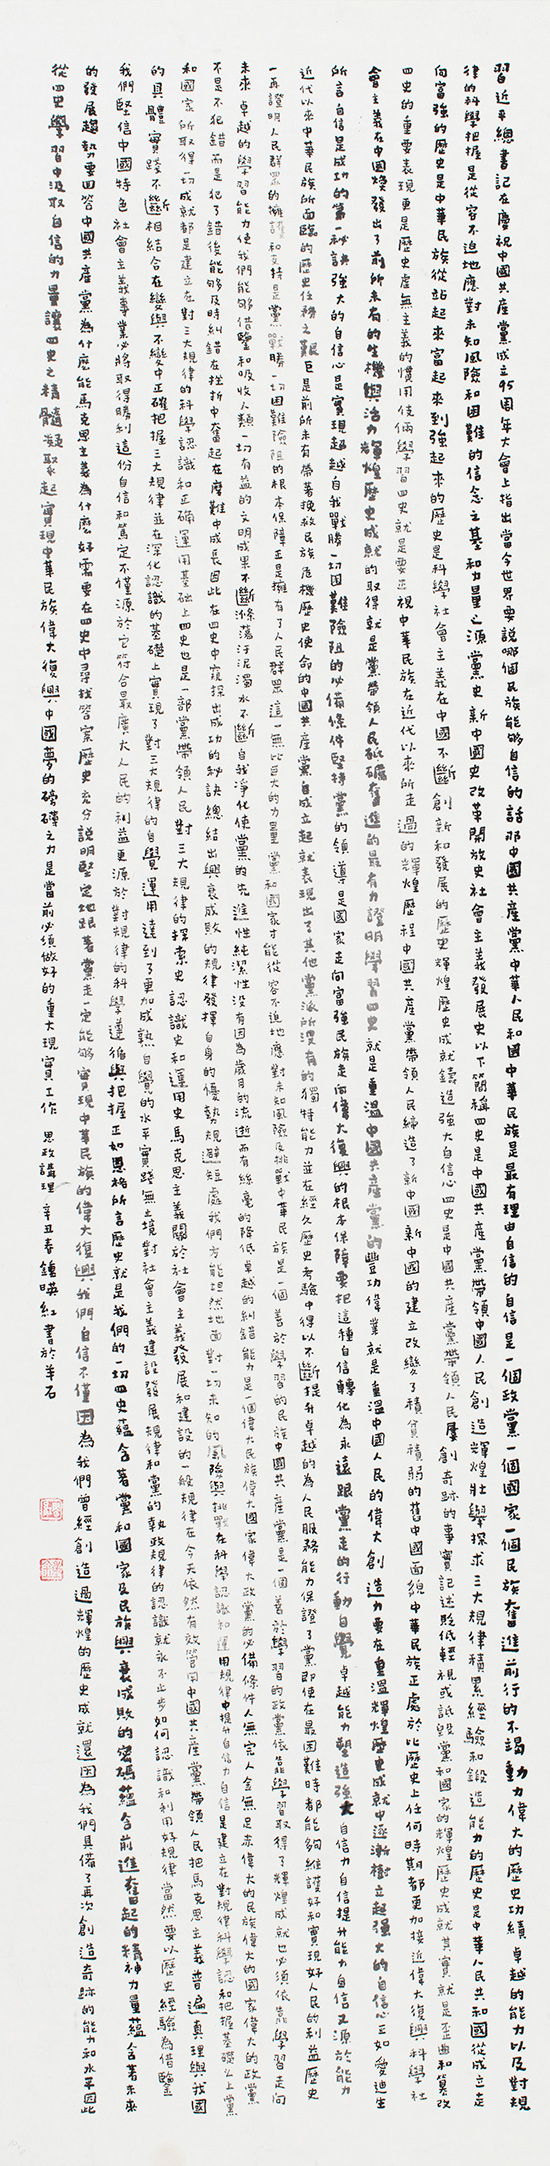 習近平總書記在慶祝中國共產黨成立95周年大會上指出當今世界要說哪個民族能夠自信的話那中國共產黨中華人民和國中華民族是最有理由自信的自信是一個政黨一個國家一個民族奮進前行的不竭動力偉大的歷史功績卓越的能力以及對規
律的科學把握是從容不迫地應對未知風險和困難的信念之基和力量之源黨史新中國史改革開放史社會主義發展史以下簡稱四史是中國共產黨帶領中國人民創造輝煌壯舉探求三大規律積累經驗和鍛造能力的歷史是中華人民共和國從成立走
向富強的歷史是中華民族從站起來富起來到強起來的歷史是科學社會主義在中國不斷創新和發展的歷史輝煌歷史成就鑄造強大自信心四史是中國共產黨帶領人民屢創奇跡的事實記述貶低輕視或詆毀黨和國家的輝煌歷史成就其實就是歪曲和篡改
四史的重要表現更是歷史虛無主義的慣用伎倆學習四史就是要正視中華民族在近代以來所走過的輝煌歷程中國共產黨帶領人民締造了新中國新中國的建立改變了積貧積弱的舊中國面貌中華民族正處於比歷史上任何時期都更加接近偉大復興科學社
會主義在中國煥發出了前所未有的生機與活力輝煌歷史成就的取得就是黨帶領人民砥礪奮進的最有力證明學習四史就是重溫中國共產黨的豐功偉業就是重溫中國人民的偉大創造力要在重溫輝煌歷史成就中逐漸樹立起強大的自信心正如愛迪生
所言自信是成功的第一秘訣強大的自信心是實現超越自我戰勝一切困難險阻的必備條件堅持黨的領導是國家走向富強民族走向偉大復興的根本保障要把這種自信轉化為永遠跟黨走的行動自覺卓越能力塑造強大自信力自信提升能力自信又源於能力
近代以來中華民族所面臨的歷史任務之艱巨是前所未有帶著挽救民族危機歷史使命的中國共產黨自成立起就表現出了其他黨派所沒有的獨特能力並在經久歷史考驗中得以不斷提升卓越的為人民服務能力保證了黨即使在最困難時都能夠維護好和實現好人民的利益歷史
一再證明人民群眾的擁護和支持是黨戰勝一切困難險阻的根本保障正是擁有了人民群眾這一無比巨大的力量黨和國家才能從容不迫地應對未知風險及挑戰中華民族是一個善於學習的民族中國共產黨是一個善於學習的政黨依靠學習取得了輝煌成就也必須依靠學習走向
未來卓越的學習能力使我們能夠借鑒和吸收人類一切有益的文明成果不斷滌蕩污泥濁水不斷自我淨化使黨的先進性純潔性沒有因為歲月的流逝而有絲毫的降低卓越的糾錯能力是一個偉大民族偉大國家偉大政黨的必備條件人無完人金無足赤偉大的民族偉大的國家偉大的政黨
不是不犯錯而是犯了錯後能夠及時糾錯在挫折中奮起在磨難中成長因此在四史中窺探出成功的秘訣總結出興衰成敗的規律發揮自身的優勢規避短處我們方能坦然地面對一切未知的風險與挑戰在科學認識和運用規律中提升自信力自信是建立在對規律科學認和把握基礎之上黨
和國家所取得一切成就都是建立在對三大規律的科學認識和正確運用基礎上四史也是一部黨帶領人民對三大規律的探索史認識史和運用史馬克思主義關於社會主義發展和建設的一般規律在今天依然有效管用中國共產黨帶領人民把馬克思主義普遍真理與我國
的具體實踐不斷相結合在變與不變中正確把握三大規律並在深化認識的基礎上實現了對三大規律的自覺運用達到了更加成熟自覺的水平實踐無止境對社會主義建設發展規律和黨的執政規律的認識就永不止步如何認識和利用好規律當然要以歷史經驗為借鑒
我們堅信中國特色社會主義事業必將取得勝利這份自信和篤定不僅源於它符合最廣大人民的利益更源於對規律的科學遵循與把握正如恩格所言歷史就是我們的一切四史蘊含著黨和國家及民族興衰成敗的密碼蘊含前進奮起的精神力量蘊含著未來
的發展趨勢要回答中國共產黨為什麼能馬克思主義為什麼好需要在四史中尋找答案歷史充分說明堅定地跟著黨走一定能夠實現中華民族的偉大復興我們自信不僅因為我們曾經創造過輝煌的歷史成就還因為我們具備了再次創造奇跡的能力和水平因此
從四史學習中汲取自信的力量讓四史之精髓凝聚起實現中華民族偉大復興中國夢的磅礴之力是當前必須做好的重大現實工作 思政講理 辛丑春鍾映紅書於羊石